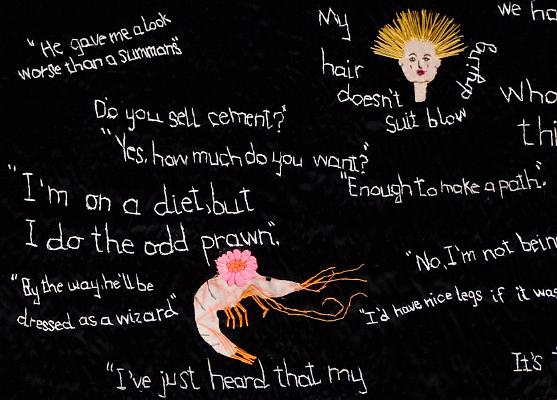 "He gave me a look
worse than a summons"
My
hair
doesn't
suit blow
drying
we ha
Do you sell cement?"
"Yes, how much do you want?"
"Enough to make a path."
who
thi
"I'm on a diet, but
I do the odd prawn".
"By the way, he'll be
dressed as a wizard"
"No, I'm not bein
"I'd have nice legs if it was
"I've just heard that my
It's